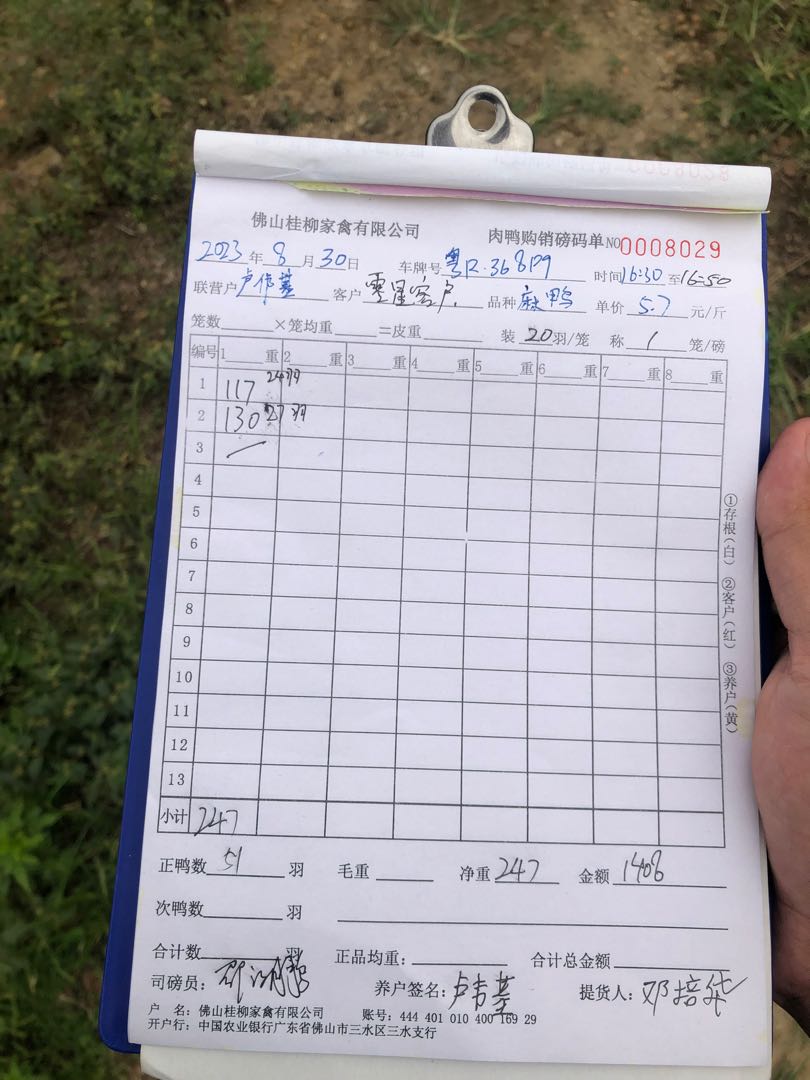 佛山桂柳家禽有限公司 肉鸭购销磅码单 NO 0008029
2023年8月30日 车牌号 时间16:30至16:50
联营户 客户 零星客户 品种 麻鸭 单价 5.7 元/斤
笼数 ×笼均重 =皮重 装 20 羽/笼 称 1 笼/磅
编号 1 重 2 重 3 重 4 重 5 重 6 重 7 重 8 重
1 117 24羽
2 130 27羽
3
4
5
6
7
8
9
10
11
12
13
小计 247
①存根(白) ②客户(红) ③养户(黄)
正鸭数 51 羽 毛重 净重 247 金额 1408
次鸭数 羽
合计数 羽 正品均重: 合计总金额
司磅员: 养户签名: 提货人: 邓培华
户 名: 佛山桂柳家禽有限公司 账号: 444 401 010 400 169 29
开户行: 中国农业银行广东省佛山市三水区三水支行